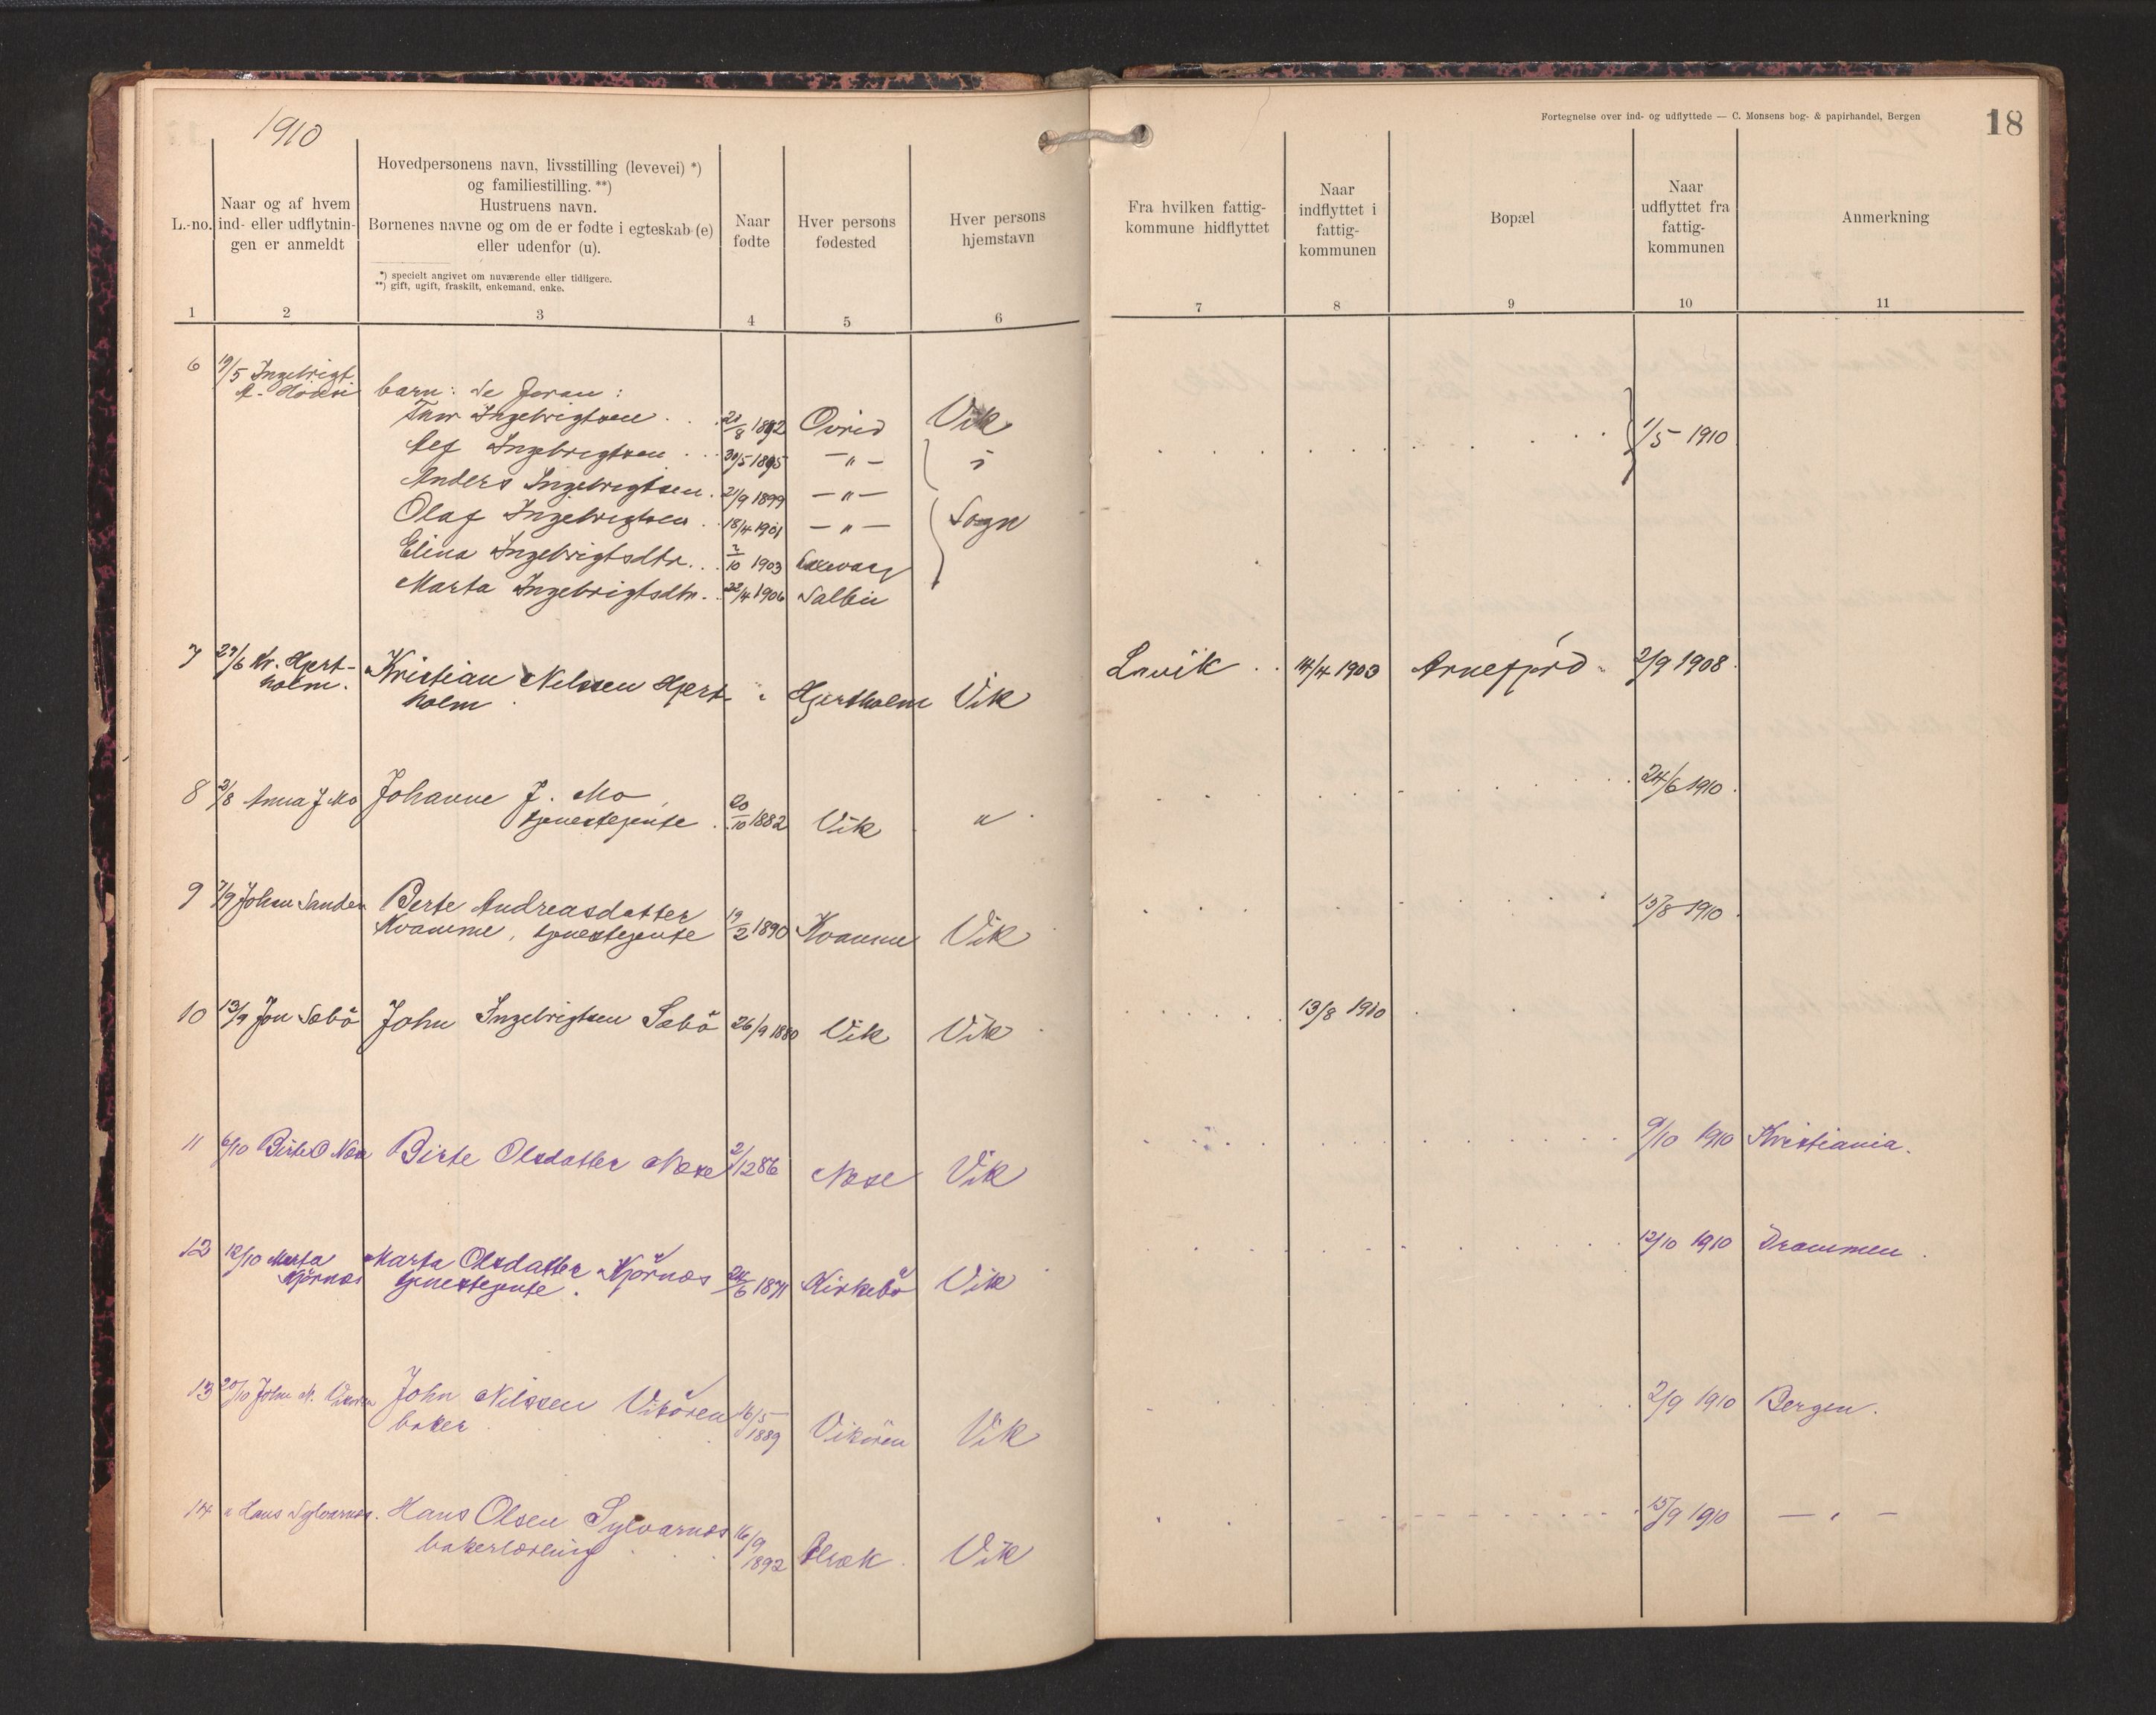 1910
Fortegnelse over ind- og udflyttede — C. Monsens bog- & papirhandel, Bergen
18
L.-no.
Naar og af hvem
ind- eller udflytnin-
gen er anmeldt
Hovedpersonens navn, livsstilling (levevei) *)
og familiestilling. **)
Hustruens navn.
Børnenes navne og om de er fødte i egteskab (e)
eller udenfor (u).
*) specielt angivet om nuværende eller tidligere.
**) gift, ugift, fraskilt, enkemand, enke.
Naar
fødte
Hver persons
fødested
Hver persons
hjemstavn
Fra hvilken fattig-
kommune hidflyttet
Naar
indflyttet i
fattig-
kommunen
Bopæl
Naar
udflyttet fra
fattig-
kommunen
Anmerkning
1 2 3 4 5 6 7 8 9 10 11
6 19/5 Ingebrigt
A. barn: de Foran:
Thor Ingebrigtsen 1892 Ovrid Vik 1/5 1910
Alf Ingebrigtsen 30/5 1895 — " — i
Anders Ingebrigtsen 21/9 1899 — " —
Olaf Ingebrigtsen 18/4 1901 — " — Sogn
Elina Ingebrigtsdtr. 2/10 1903
Marta Ingebrigtsdtr. 22/4 1906 Salbu
7 29/6 Kr. Hjert-
holm. Kristian Nilssen Hjert-
holm Hjertholm Vik Lavik 14/4 1903 Arnefjord 2/9 1908
8 2/8 Anna J Mo Johanne J. Mo 24/6 1910
tjenestejente 20/10 1882 Vik "
9 7/9 Johan Sanden Berte Andreasdatter 15/8 1910
Kvamme, tjenestejente 19/2 1890 Kvamme Vik
10 13/9 Jon Sæbö John Ingebrigtsen Sæbö 26/9 1880 Vik Vik 13/8 1910
11 6/10 Birte O Nese Birte Olsdatter Nese 2/12 86 Nese Vik 9/10 1910 Kristiania.
12 12/10 Marta
Kjörnes Marta Olsdatter Kjörnes
tjenestejente. 24/6 1871 Kirkebö Vik 12/10 1910 Drammen.
13 20/10 John N. Vikören John Nilssen Vikören 16/5
baker 1889 Vikören Vik 2/9 1910 Bergen.
14 " Hans Sylvarnes. Hans Olsen Sylvarnes 16/9
bakerlærling 1892 Vik 15/9 1910 — " —